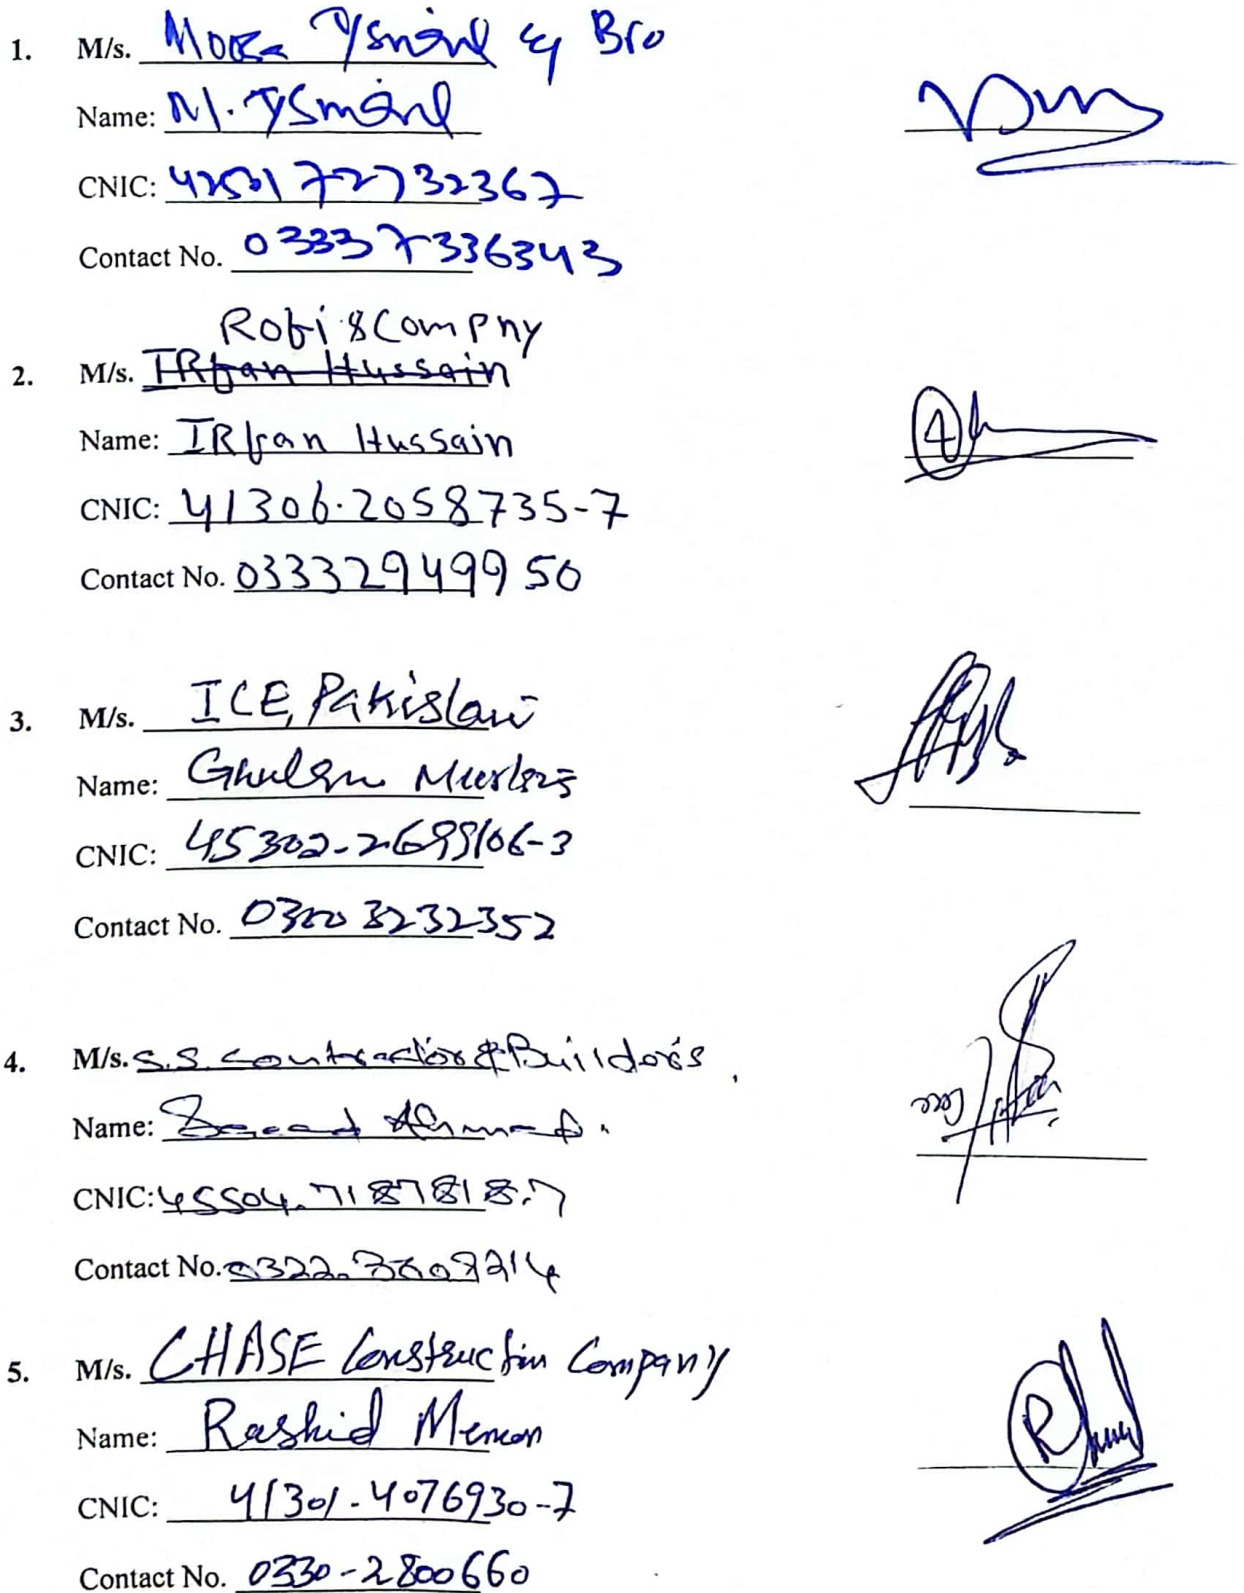 1. M/s. Moosa Ysmail & Bro
Name: M. Ysmail
CNIC: 42501 72732367
Contact No. 03337336343
Robi & Compny
2. M/s. IRfan Hussain
Name: IRfan Hussain
CNIC: 41306.2058735-7
Contact No. 03332949950
3. M/s. ICE, Pakistan
Name: Ghulam Murtaza
CNIC: 45302-2699106-3
Contact No. 0300 3232352
4. M/s. S.S. Contractor & Builders
Name: Ahmed.
CNIC: 45504.7187818.7
Contact No.
5. M/s. CHASE Construction Company
Name: Rashid Memon
CNIC: 41301-4076930-7
Contact No. 0330-2800660